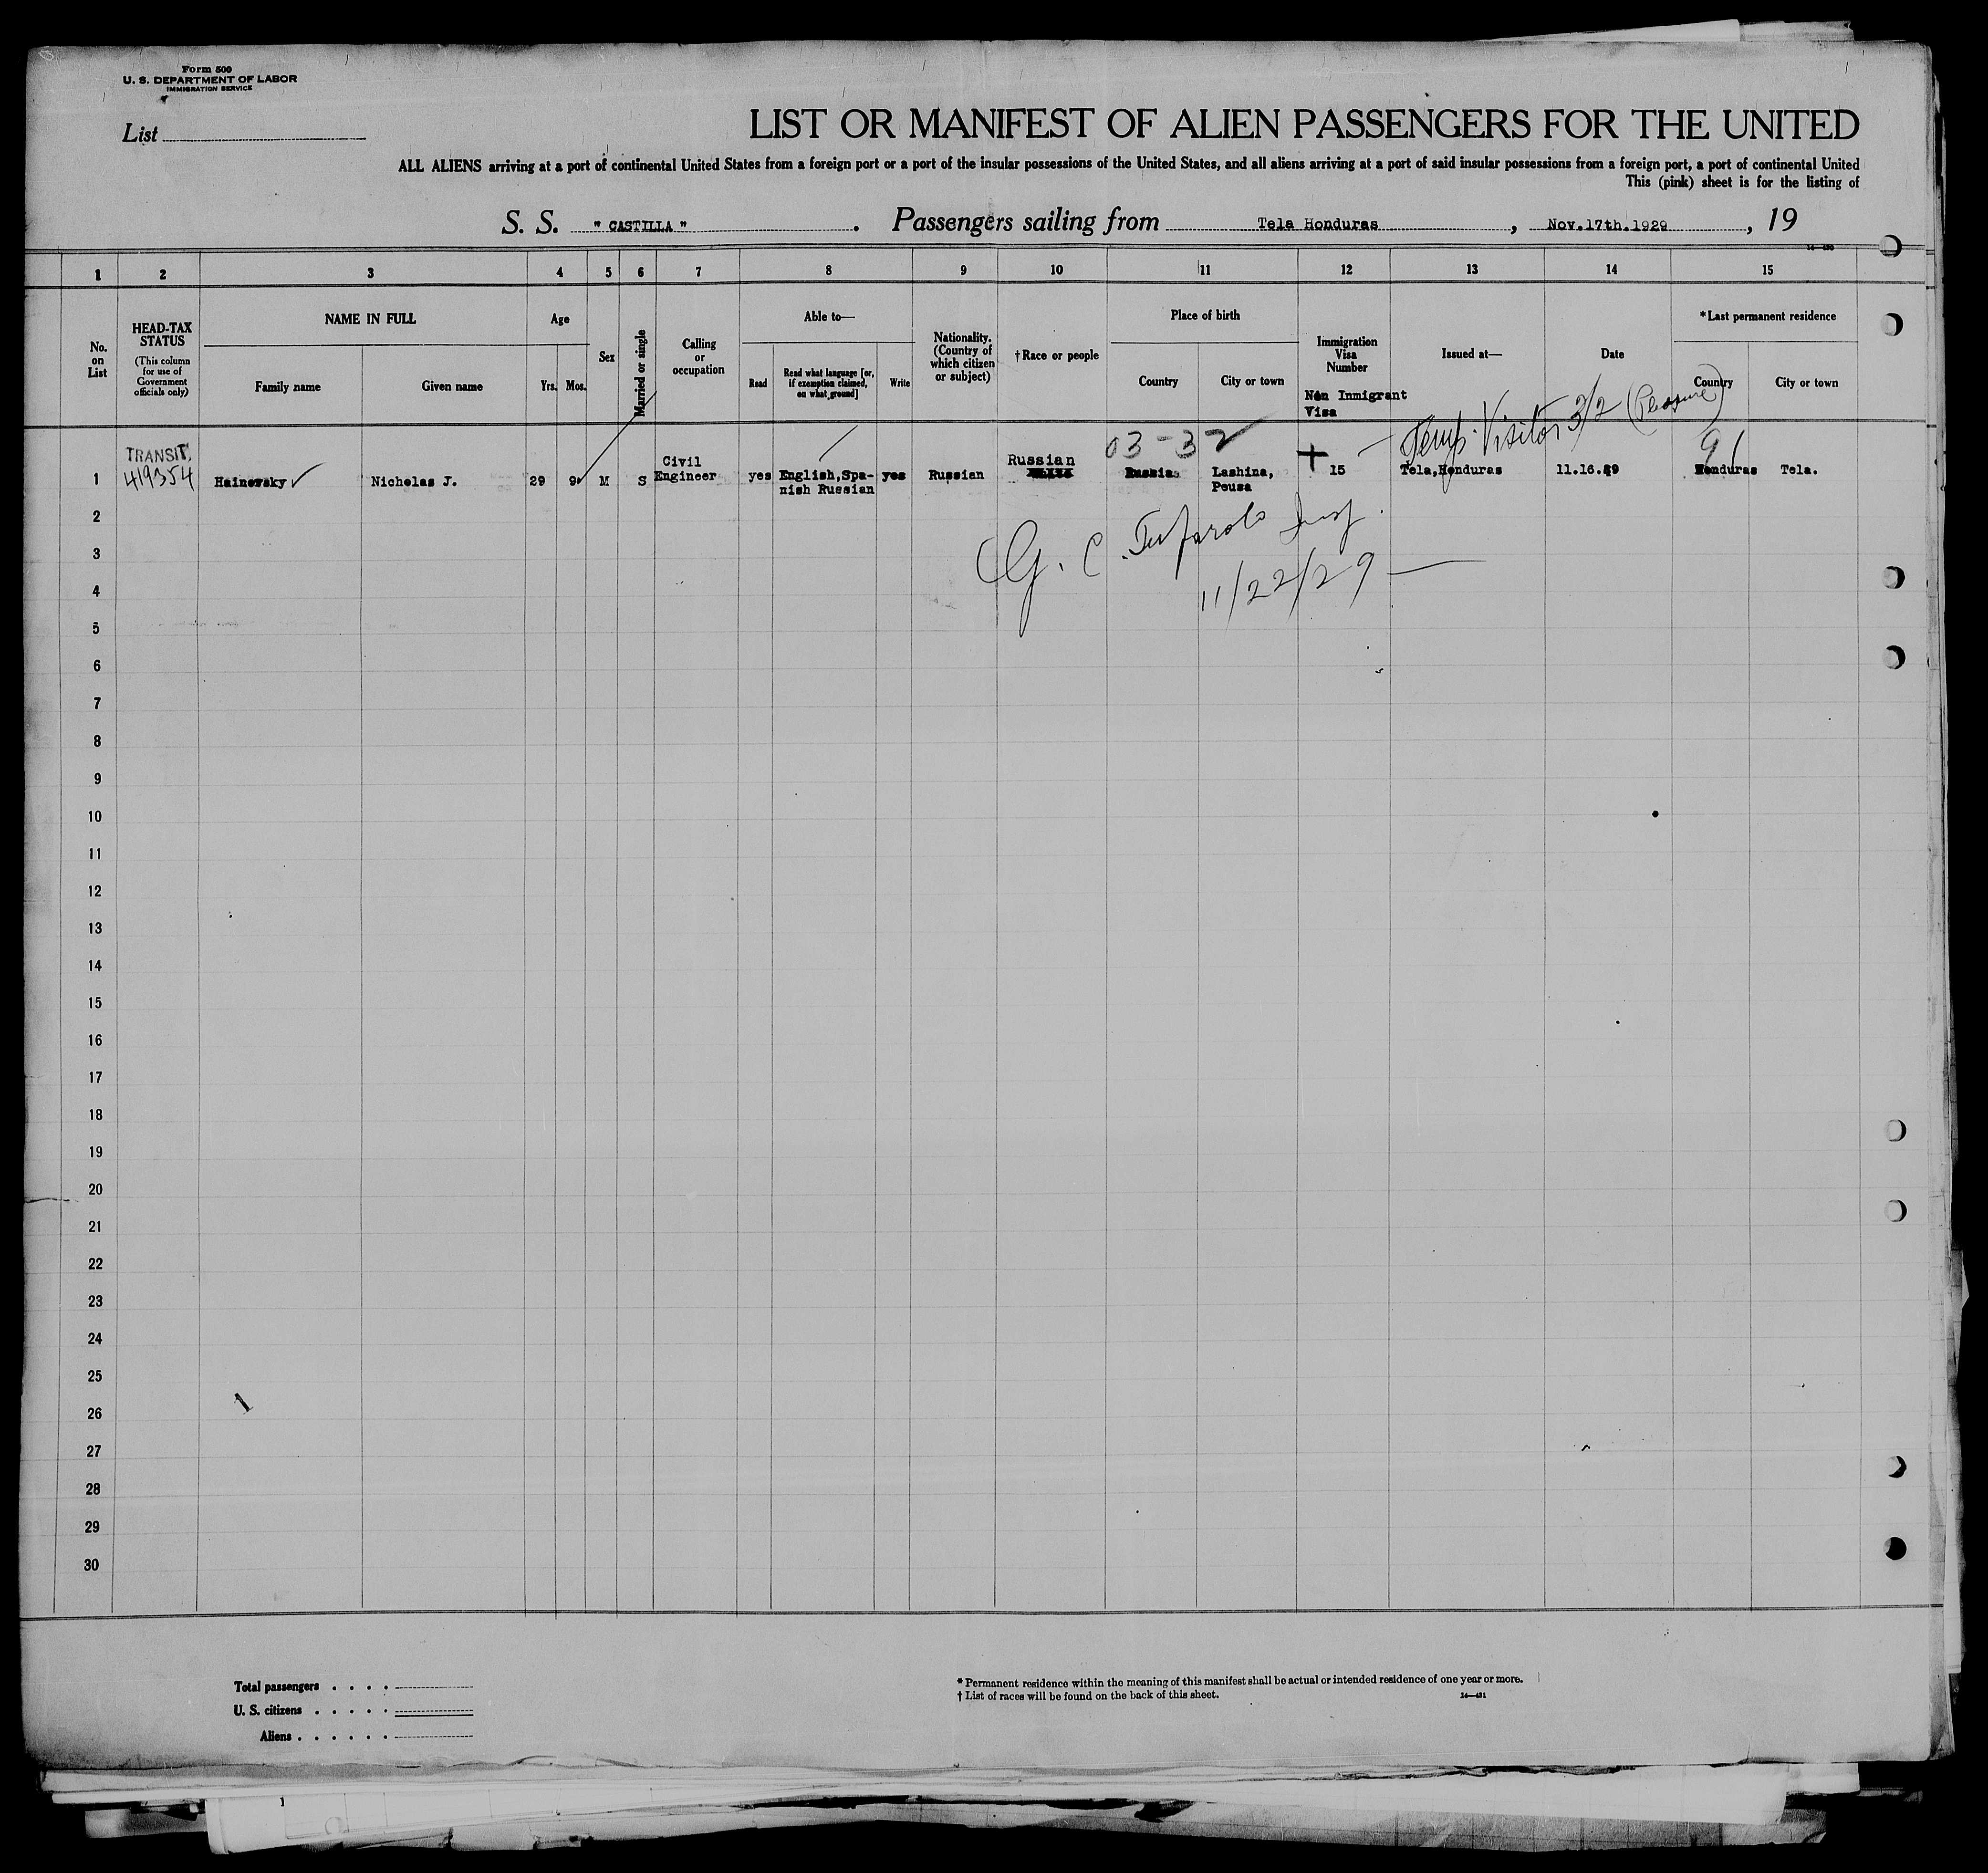 Form 500
U. S. DEPARTMENT OF LABOR
IMMIGRATION SERVICE
List
LIST OR MANIFEST OF ALIEN PASSENGERS FOR THE UNITED
ALL ALIENS arriving at a port of continental United States from a foreign port or a port of the insular possessions of the United States, and all aliens arriving at a port of said insular possessions from a foreign port, a port of continental United
This (pink) sheet is for the listing of
S. S. "CASTILLA" . Passengers sailing from Tela Honduras , Nov.17th.1929 , 19
1 2 3 4 5 6 7 8 9 10 11 12 13 14 15
No. on List
HEAD-TAX STATUS
(This column for use of Government officials only)
NAME IN FULL
Family name
Given name
Age
Yrs.
Mos.
Sex
Married or single
Calling or occupation
Able to—
Read
Read what language [or, if exemption claimed, on what ground]
Write
Nationality. (Country of which citizen or subject)
†Race or people
Place of birth
Country
City or town
Immigration Visa Number
Non Inmigrant
Visa
Issued at—
Date
*Last permanent residence
Country
City or town
Temp. Visitor 3/2 (Pleasure)
TRANSIT,
419354
03-32
91
1 Hainovsky Nicholas J. 29 9 M S Civil Engineer yes English,Spanish Russian yes Russian Russian Russia Lashina, 15 Tela,Honduras 11.16.29 Honduras Tela.
G. C. Insp.
11/22/29
2
3
4
5
6
7
8
9
10
11
12
13
14
15
16
17
18
19
20
21
22
23
24
25
26
27
28
29
30
1
Total passengers . . . .
U. S. citizens . . . . .
Aliens . . . . . .
* Permanent residence within the meaning of this manifest shall be actual or intended residence of one year or more.
† List of races will be found on the back of this sheet.
14—431